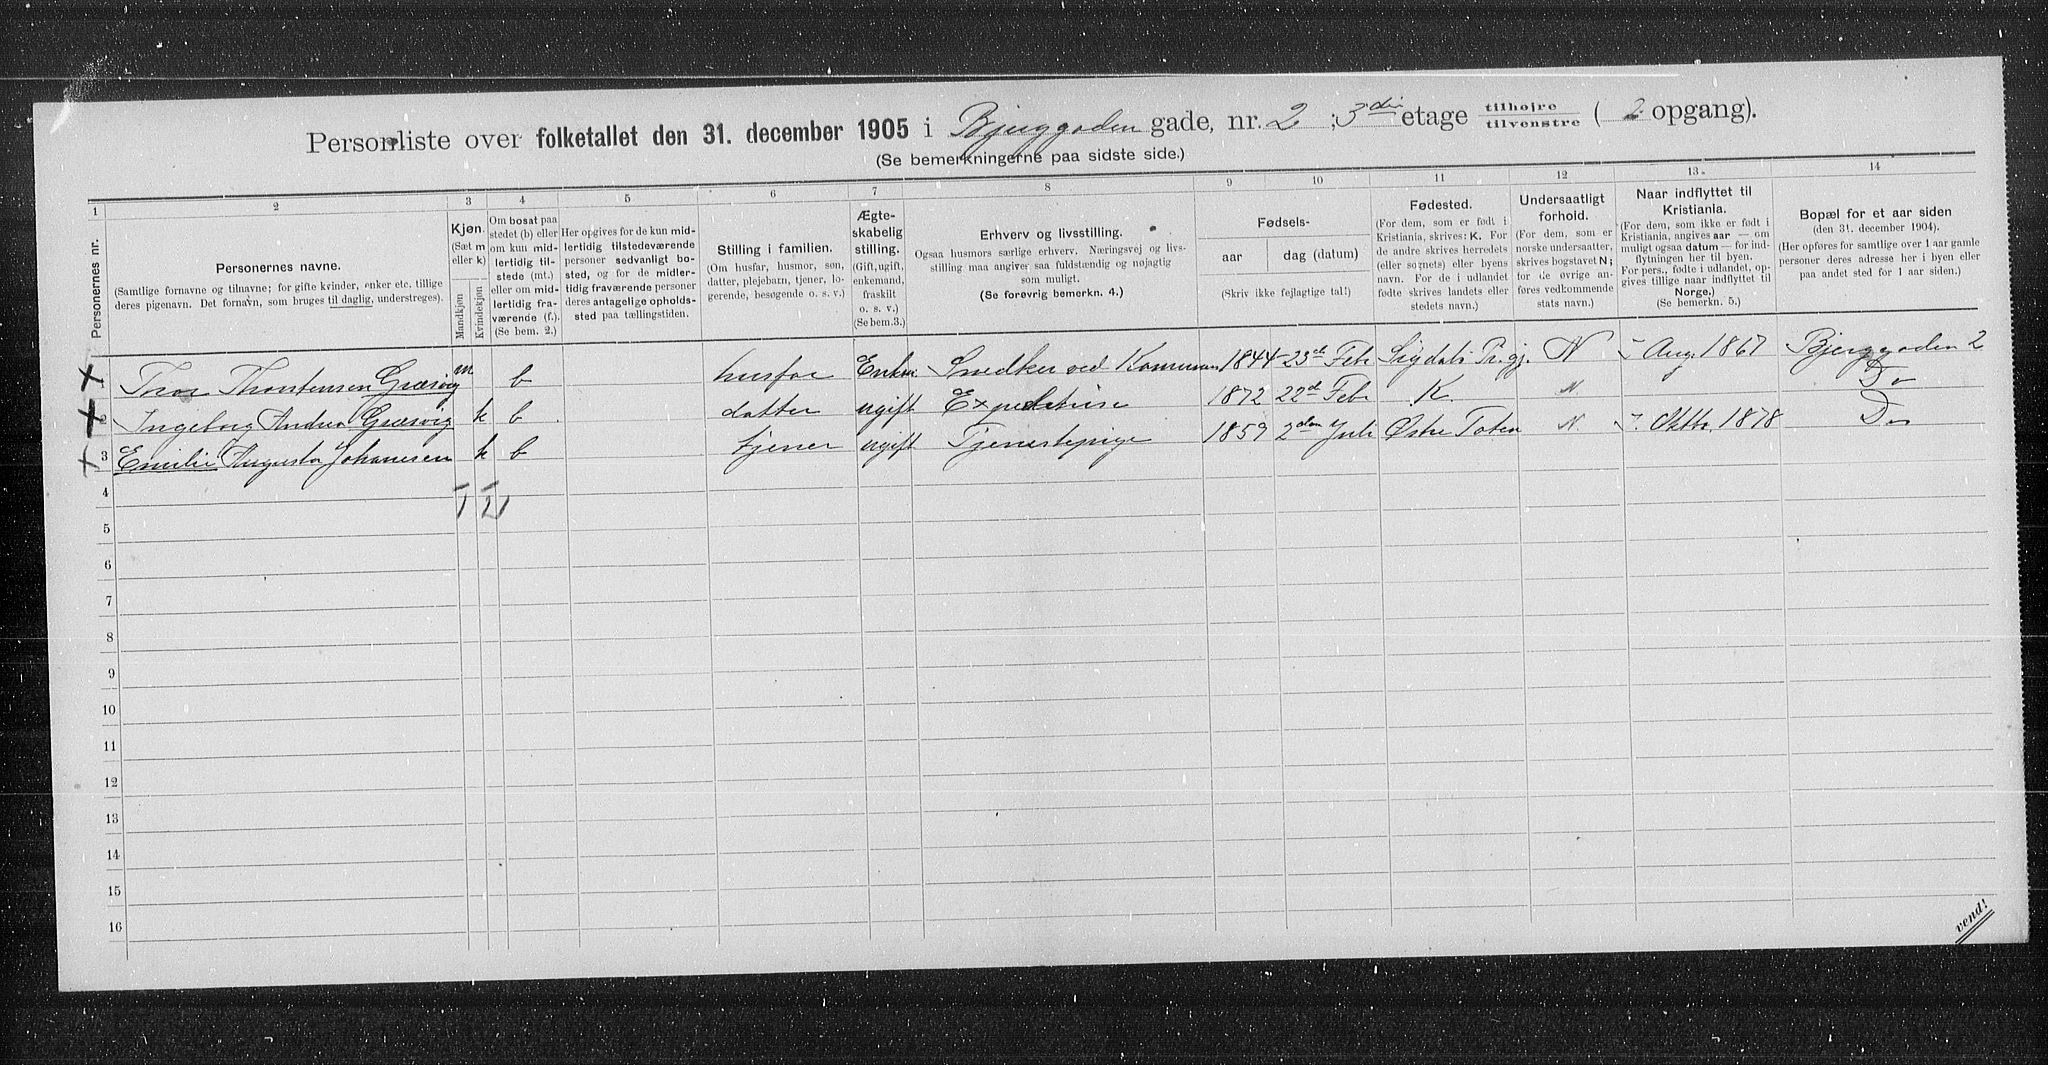 Personliste over folketallet den 31. december 1905 i Bjerggaden gade, nr. 2 ; 3die etage tilhøjre tilvenstre ( 2 opgang).
(Se bemerkningerne paa sidste side.)
1 2 3 4 5 6 7 8 9 10 11 12 13 14
Personernes nr.
Personernes navne.
(Samtlige fornavne og tilnavne; for gifte kvinder, enker etc. tillige
deres pigenavn. Det fornavn, som bruges til daglig, understreges).
Kjøn.
(Sæt m
eller k)
Mandkjøn
Kvindekjøn
Om bosat paa
stedet (b) eller
om kun mid-
lertidig til-
stede (mt.)
eller om mid-
lertidig fra-
værende (f.).
(Se bem. 2.)
Her opgives for de kun mid-
lertidig tilstedeværende
personer sedvanligt bo-
sted, og for de midler-
tidig fraværende personer
deres antagelige opholds-
sted paa tællingstiden.
Stilling i familien.
(Om husfar, husmor, søn,
datter, plejebarn, tjener, lo-
gerende, besøgende o. s. v.)
Ægte-
skabelig
stilling.
(Gift, ugift,
enkemand,
fraskilt
o. s. v.)
(Se bem. 3.)
Erhverv og livsstilling.
Ogsaa husmors særlige erhverv. Næringsvej og livs-
stilling maa angives saa fuldstændig og nøjagtig
som muligt.
(Se forøvrig bemerkn. 4.)
Fødsels-
aar
dag (datum)
(Skriv ikke fejlagtige tal!)
Fødested.
(For dem, som er født i
Kristiania, skrives: K. For
de andre skrives herredets
(eller sognets) eller byens
navn. For de i udlandet
fødte skrives landets eller
stedets navn.)
Undersaatligt
forhold.
(For dem, som er
norske undersaatter,
skrives bogstavet N;
for de øvrige an-
føres vedkommende
stats navn.)
Naar indflyttet til
Kristiania.
(For dem, som ikke er født i
Kristiania, angives aar — om
muligt ogsaa datum — for ind-
flytningen her til byen.
For pers., fødte i udlandet, op-
gives tillige naar indflyttet til
Norge.)
(Se bemerkn. 5.)
Bopæl for et aar siden
(den 31. december 1904).
(Her opføres for samtlige over 1 aar gamle
personer deres adresse her i byen eller
paa andet sted for 1 aar siden.)
Thor Thorstensen Græsvig m b husfar Enkm Snedker ved Kommunen 1844 23de Febr Sigdals Pr.gj. N Aug 1867 Bjerggaden 2
2 Ingeborg Andrea Græsvig k b datter ugift Expeditrise 1872 22de Febr K. N. Do
3 Emilie Augusta Johanesen k b tjener ugift Tjenestepige 1859 2den Juli Østre Toten N Oktbr 1878 Do
4
5
6
7
8
9
10
11
12
13
14
15
16
vend!